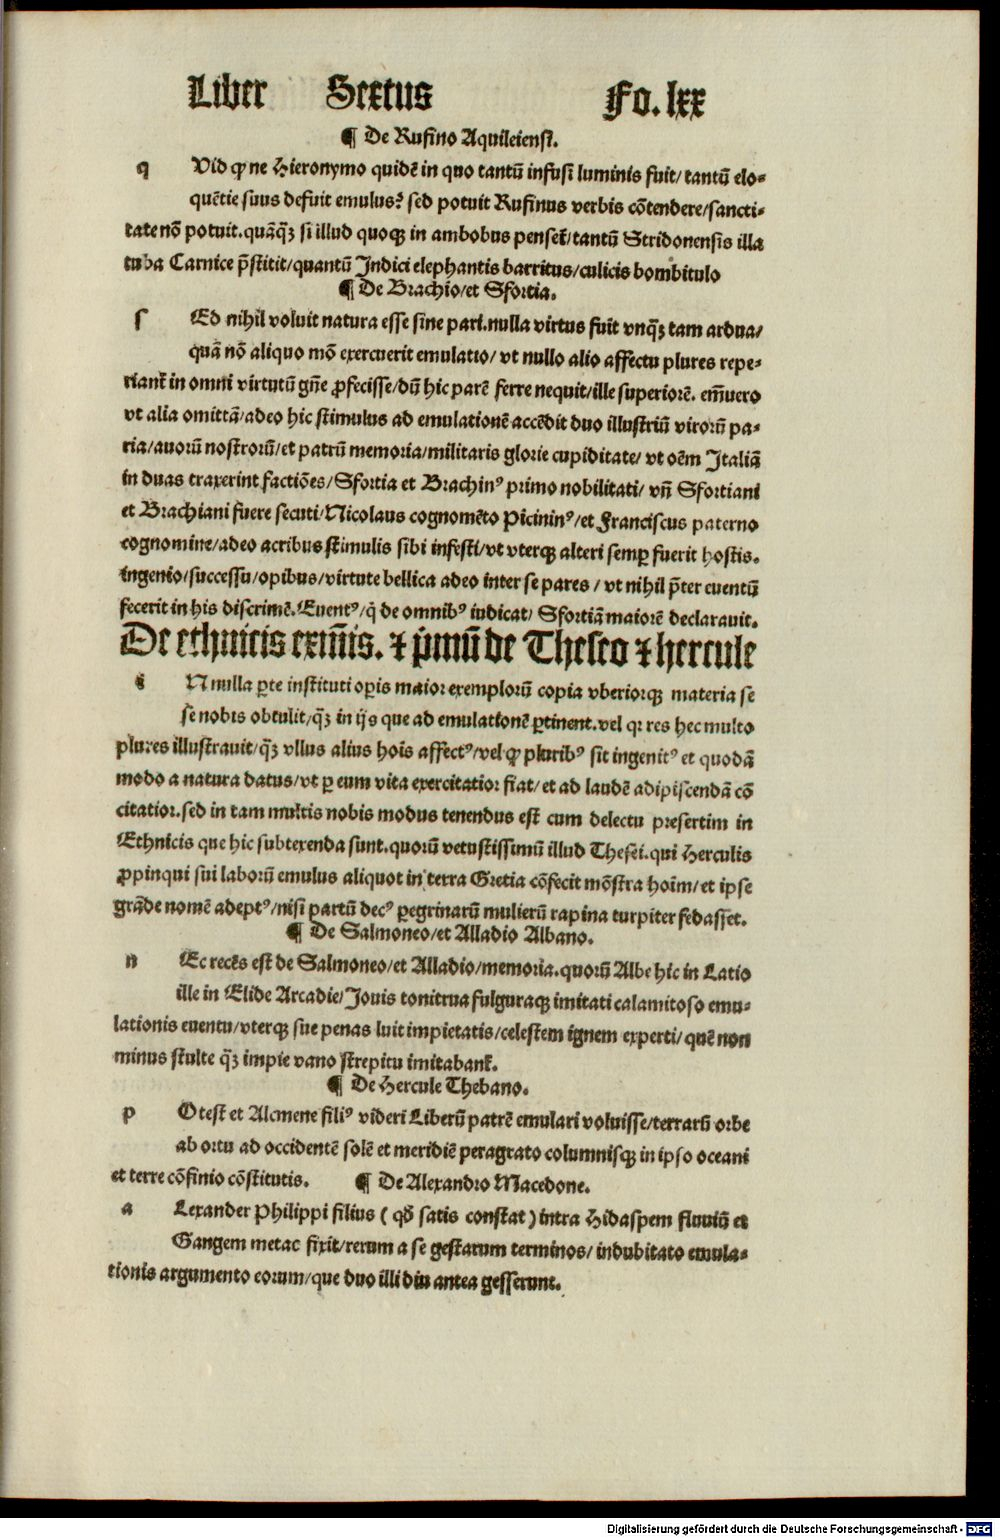 Liber Sextus Fo. lxx
¶ De Rufino Aquileiensi.
q Vid ꝙ ne Hieronymo quidē in quo tantū infusi luminis fuit/ tantū elo⸗
quētie suus defuit emulus? sed potuit Rufinus verbis cōtendere/sancti⸗
tate nō potuit. quāqꝫ si illud quoqꝫ in ambobus penset̄/tantū Stridonensis illa
tuba Carnice p̄stitit/quantū Indici elephantis barritus/culicis bombitulo
¶ De Brachio/et Sfortia.
ſ Ed nihil voluit natura esse sine pari. nulla virtus fuit vnqꝫ tam ardua/
quā nō aliquo mō exercuerit emulatio/ vt nullo alio affectu plures repe⸗
riant̄ in omni virtutū gn̄e ꝓfecisse/dū hic parē ferre nequit/ille superiorē. em̄uero
vt alia omittā/adeo hic stimulus ad emulationē accēdit duo illustriū virorū pa⸗
ria/auorū nostrorū/et patrū memoria/militaris glorie cupiditate/ vt oēm Italiā
in duas traxerint factiōes/Sfortia et Brachinꝰ primo nobilitati/ vn̄ Sfortiani
et Brachiani fuere secuti/Nicolaus cognomēto Picininꝰ/et Franciscus paterno
cognomine/adeo acribus stimulis sibi infesti/vt vterqꝫ alteri semp̄ fuerit hostis.
ingenio/successu/opibus/virtute bellica adeo inter se pares / vt nihil p̄ter euentū
fecerit in his discrimē. Euentꝰ/q̇ de omnibꝰ iudicat/ Sfortiā maiorē declarauit.
De ethnicis eximīs. ⁊ p̄mū de Theseo ⁊ hercule
i N nulla ꝑte instituti oꝑis maior exemplorū copia vberiorqꝫ materia se
se nobis obtulit/qꝫ in ijs que ad emulationē ꝑtinent. vel qꝛ res hec multo
plures illustrauit/qꝫ vllus alius hois affectꝰ/vel ꝙ pluribꝰ sit ingenitꝰ et quodā
modo a natura datus/vt ꝑ eum vita exercitatior fiat/et ad laudē adipiscendā cō
citatior. sed in tam multis nobis modus tenendus est cum delectu presertim in
Ethnicis que hic subtexenda sunt. quorū vetustissimū illud Thesei. qui Herculis
ꝓpinqui sui laborū emulus aliquot in terra Gretia cōfecit mōstra hoim̄/et ipse
grāde nomē adeptꝰ/nisi partū decꝰ ꝑegrinarū mulierū rapina turpiter fedasset.
¶ De Salmoneo/et Alladio Albano.
n Ec recēs est de Salmoneo/et Alladio/memoria. quorū Albe hic in Latio
ille in Elide Arcadie/Iouis tonitrua fulguraqꝫ imitati calamitoso emu⸗
lationis euentu/vterqꝫ sue penas luit impietatis/celestem ignem experti/ quē non
minus stulte qꝫ impie vano strepitu imitabant̄.
¶ De Hercule Thebano.
p Otest et Alcmene filiꝰ videri Liberū patrē emulari voluisse/terrarū orbe
ab ortu ad occidentē solē et meridiē peragrato columnisqꝫ in ipso oceani
et terre cōfinio cōstitutis. ¶ De Alexandro Macedone.
a Lexander Philippi filius ( qđ satis constat ) intra Hidaspem fluuiū et
Gangem metas fixit/rerum a se gestarum terminos/ indubitato emula⸗
tionis argumento eorum/que duo illi diu antea gesserunt.
Digitalisierung gefördert durch die Deutsche Forschungsgemeinschaft - DFG